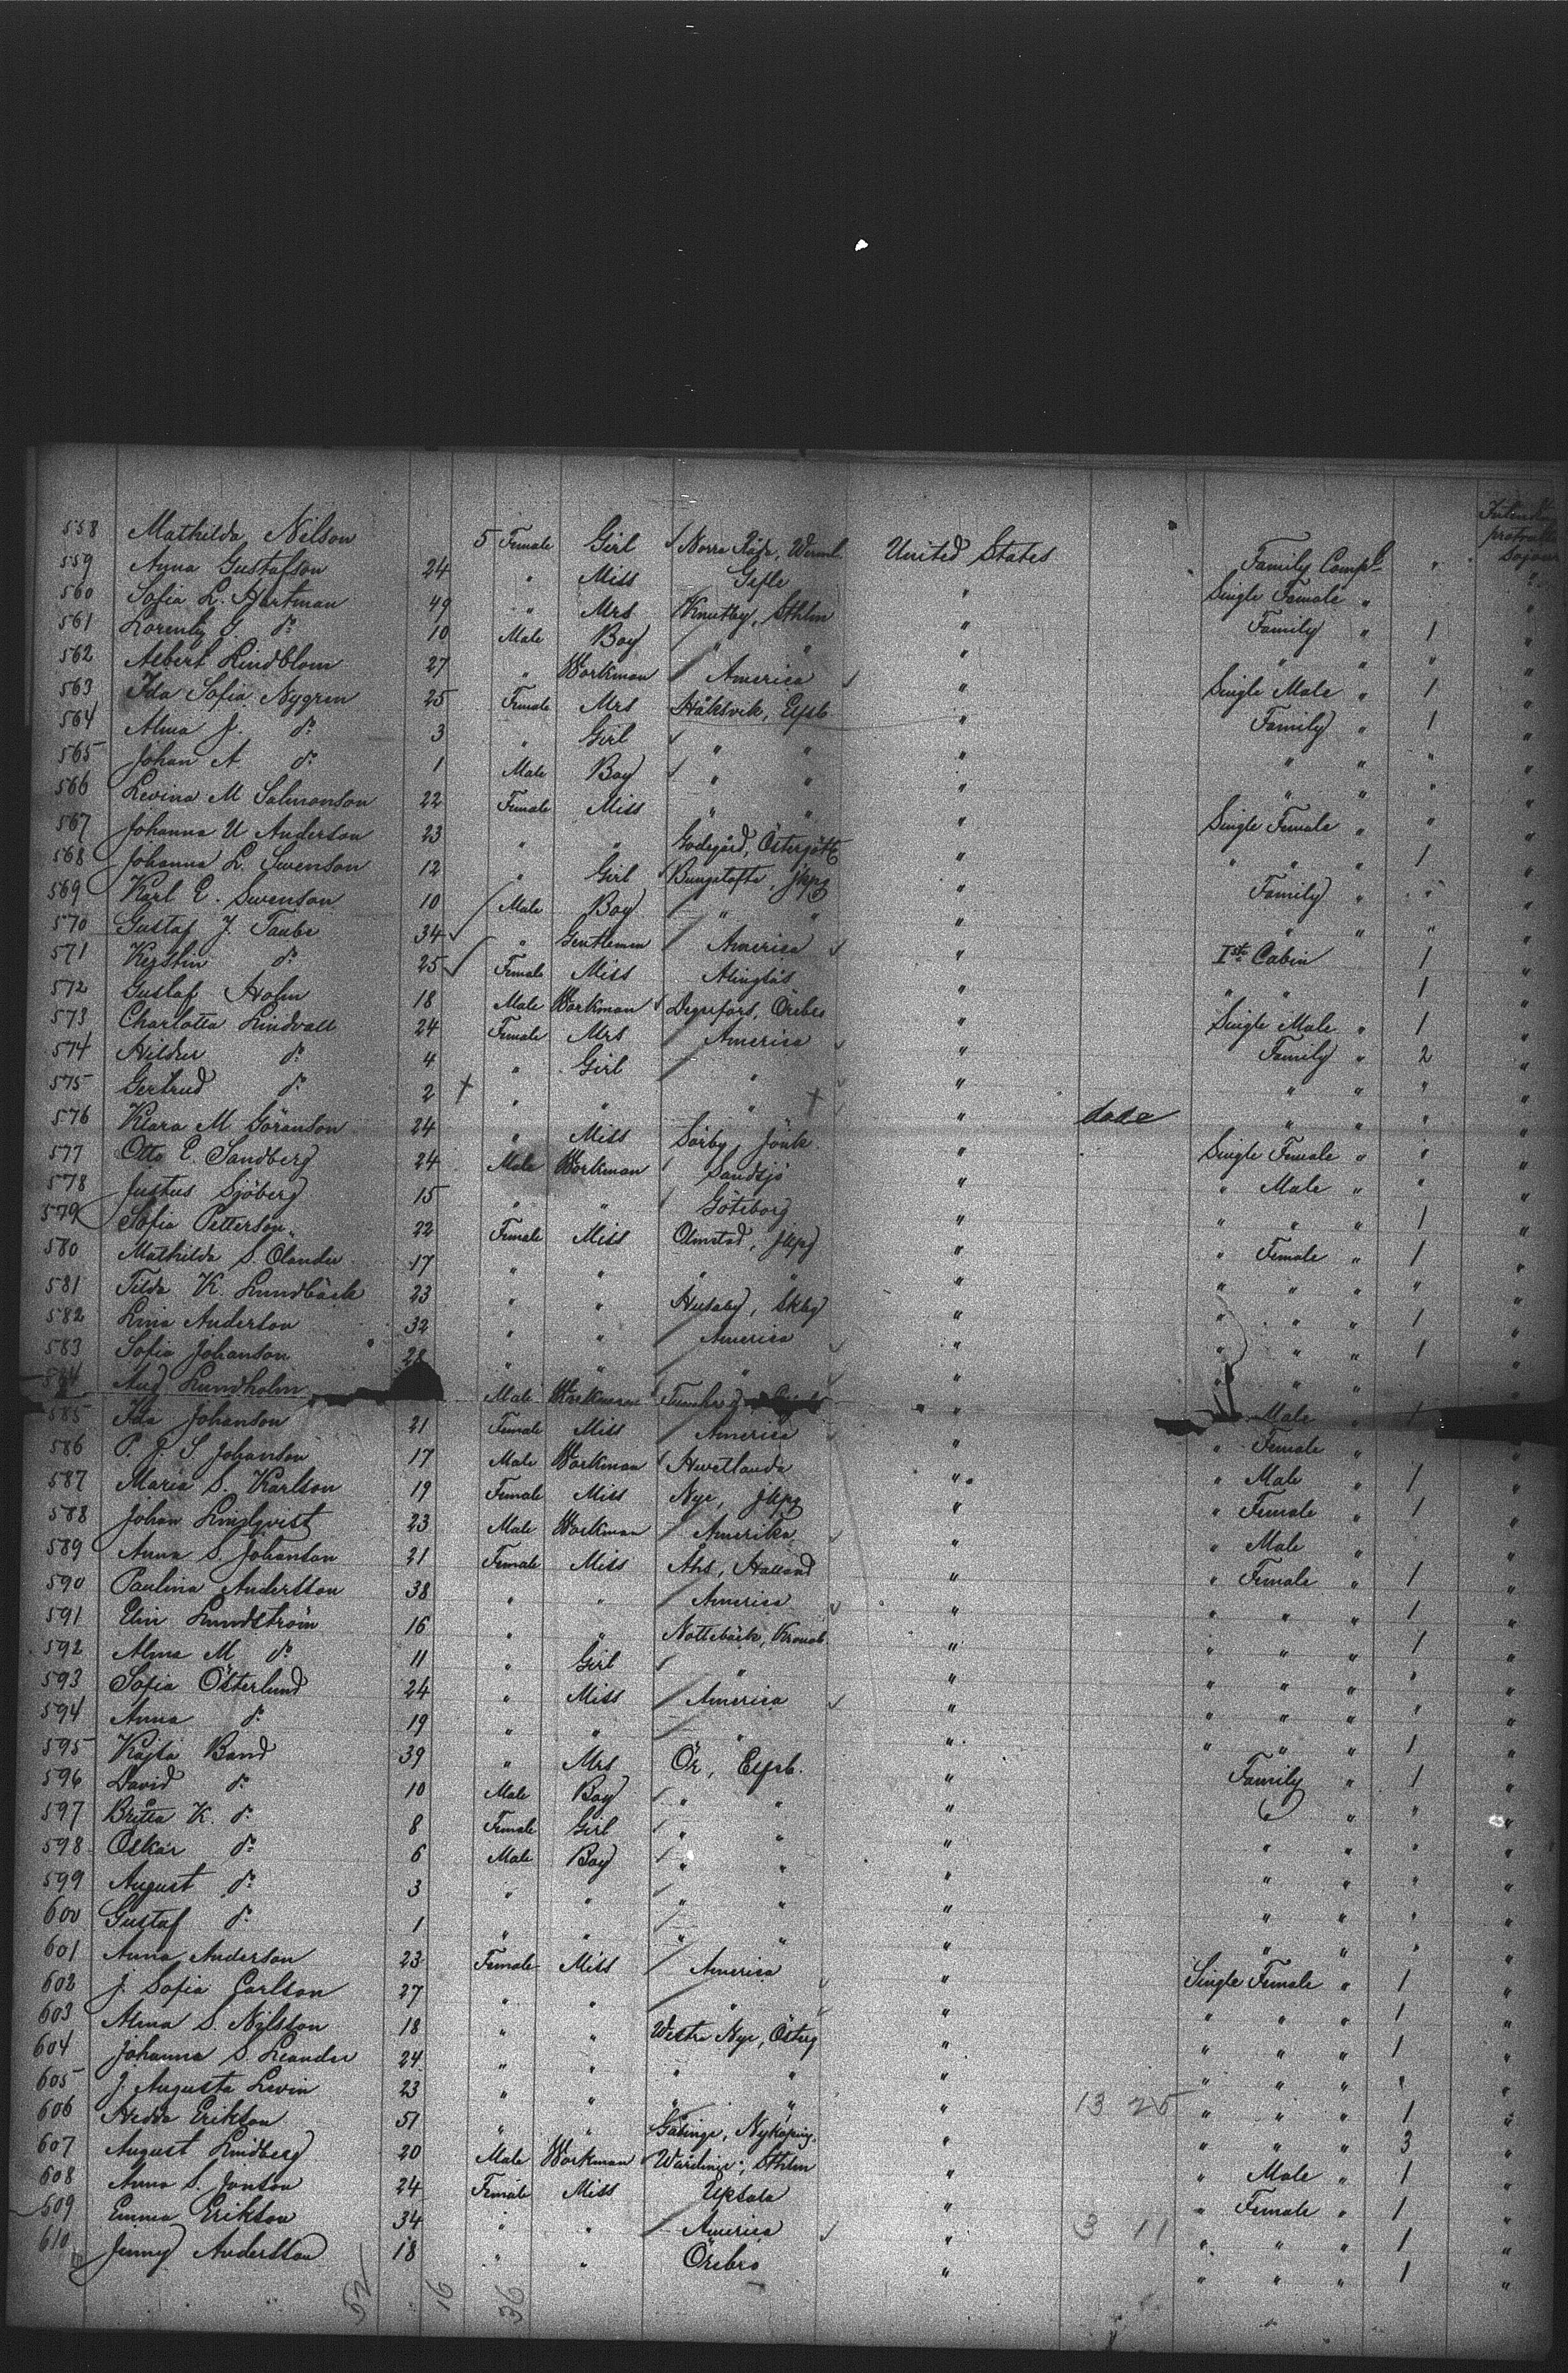 Intend protracted Sojourn
558 Mathilda Nilson 5 Female Girl Norra Råda, Werml. United States Family Compt "
559 Anna Gustafson 24 " Miss Gefle " Single Female " "
560 Sofia L. Hjertman 49 " Mrs Knutby, Sthlm " Family " 1 "
561 Lorentz G. do 10 Male Boy " " " " " " "
562 Albert Lindblom 27 " Workman America " Single Male " 1 "
563 Ida Sofia Nygren 25 Female Mrs Håksvik, Elfsb. " Family " 1 "
564 Alma J. do 3 " Girl " " " " " " "
565 Johan A do 1 Male Boy " " " " " " "
566 Levina M Salmonson 22 Female Miss " " " Single Female " " "
567 Johanna U Anderson 23 " " Godegård, Östergötl " " " " 1 "
568 Johanna L. Swenson 12 " Girl Jkpg " Family " " "
569 Karl E. Swenson 10 Male Boy " " " " " " "
570 Gustaf J. Taube 34 " Gentleman America " Ist Cabin 1 "
571 Kerstin do 25 Female Miss Alingsås " " " 1 "
572 Gustaf Holm 18 Male Workman Degerfors, Örebro " Single Male " 1 "
573 Charlotta Lindvall 24 Female Mrs America " Family " 2 "
574 do 4 " Girl " " " " " "
575 Gertrud do 2 + " " " + " " " " "
576 Klara M Göranson 24 " Miss Sörby, Jönk. " Single Female " " "
577 Otto E. Sandberg 24 Male Workman Sandsjö " " Male " " "
578 Justus Sjöberg 15 " " Göteborg " " " " 1 "
579 Sofia Petterson 22 Female Miss Olmstad, Jkpg " " Female " 1 "
580 Mathilda S. Olander 17 " " " " " " " " " "
581 Tilda K. Lundbäck 23 " " Husaby, Skbg " " " " 1 "
582 Lina Anderson 32 " " America " " " " 1 "
583 Sofia Johanson 28 " " " " " " " "
584 Aug Lundholm Male Workman " Male " 1
585 Ida Johanson 21 Female Miss America " " Female "
586 P. J. S. Johanson 17 Male Workman Hvetlanda " " Male " 1 "
587 Maria S. Karlson 19 Female Miss Nye, Jkpg " " Female " 1 "
588 Johan Lindqvist 23 Male Workman Amerika " " Male " "
589 Anna S. Johanson 21 Female Miss Ahs, Halland " " Female " 1 "
590 Paulina Andersson 38 " " America " " " " 1 "
591 Elin Lundström 16 " " Nottebäck, Kronob. " " " " 1 "
592 Alma M do 11 " Girl " " " " " " "
593 Sofia Österlund 24 " Miss America " " " " " "
594 Anna do 19 " " " " " " " 1 "
595 Kajsa Band 39 " Mrs Ör, Elfsb. " Family " 1 "
596 David do 10 Male Boy " " " " " " "
597 Britta K. do 8 Female Girl " " " " " " "
598 Oskar do 6 Male Boy " " " " " " "
599 August do 3 " " " " " " " " "
600 Gustaf do 1 " " " " " " " " "
601 Anna Anderson 23 Female Miss America " Single Female " 1 "
602 J. Sofia Carlson 27 " " " " " " " 1 "
603 Alma S. Nilsson 18 " " Westra Nye, Österg " " " " 1 "
604 Johanna S. Leander 24 " " " " " " " " " "
605 J. Augusta Levin 23 " " " " " 13 25 " " " 1 "
606 Hedda Erikson 51 " " Gåsinge, Nyköping. " " " " 3 "
607 August Lindberg 20 Male Workman Wårdinge, Sthlm " " Male " 1 "
608 Anna S. Jonson 24 Female Miss Upsala " " Female " 1 "
609 Emma Erikson 34 " " America " 3 11 " " " 1 "
610 Jenny Andersson 18 " " Örebro " " " " 1 "
52 16 36